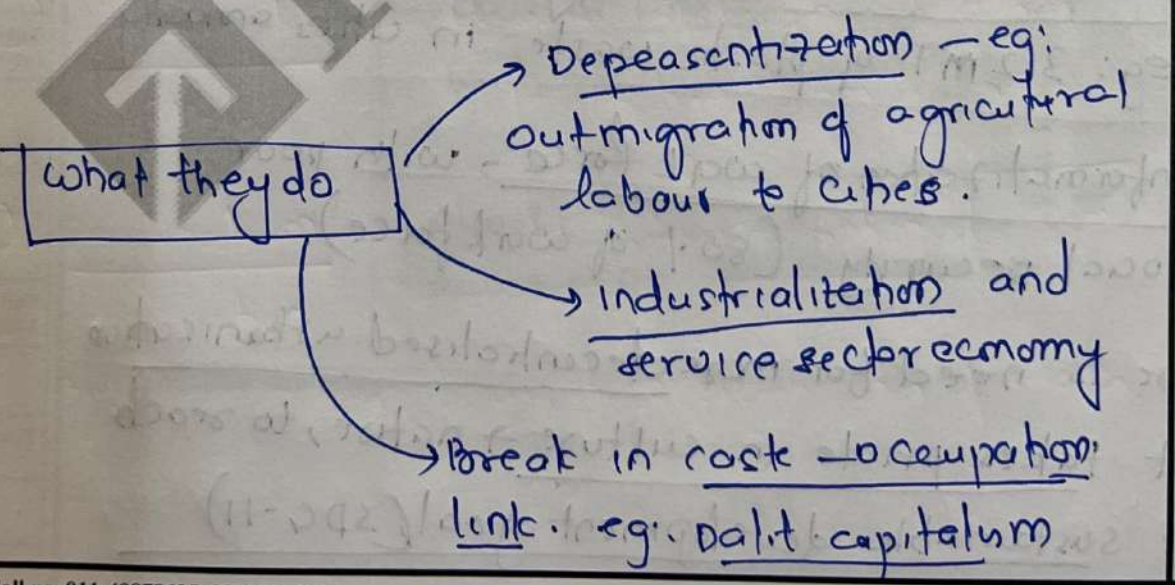 Depeasantization – eg:
outmigration of agricultural
labour to cities.
What they do
industrialization and
service sector economy
Break in caste – occupation
link. eg. Dalit capitalism